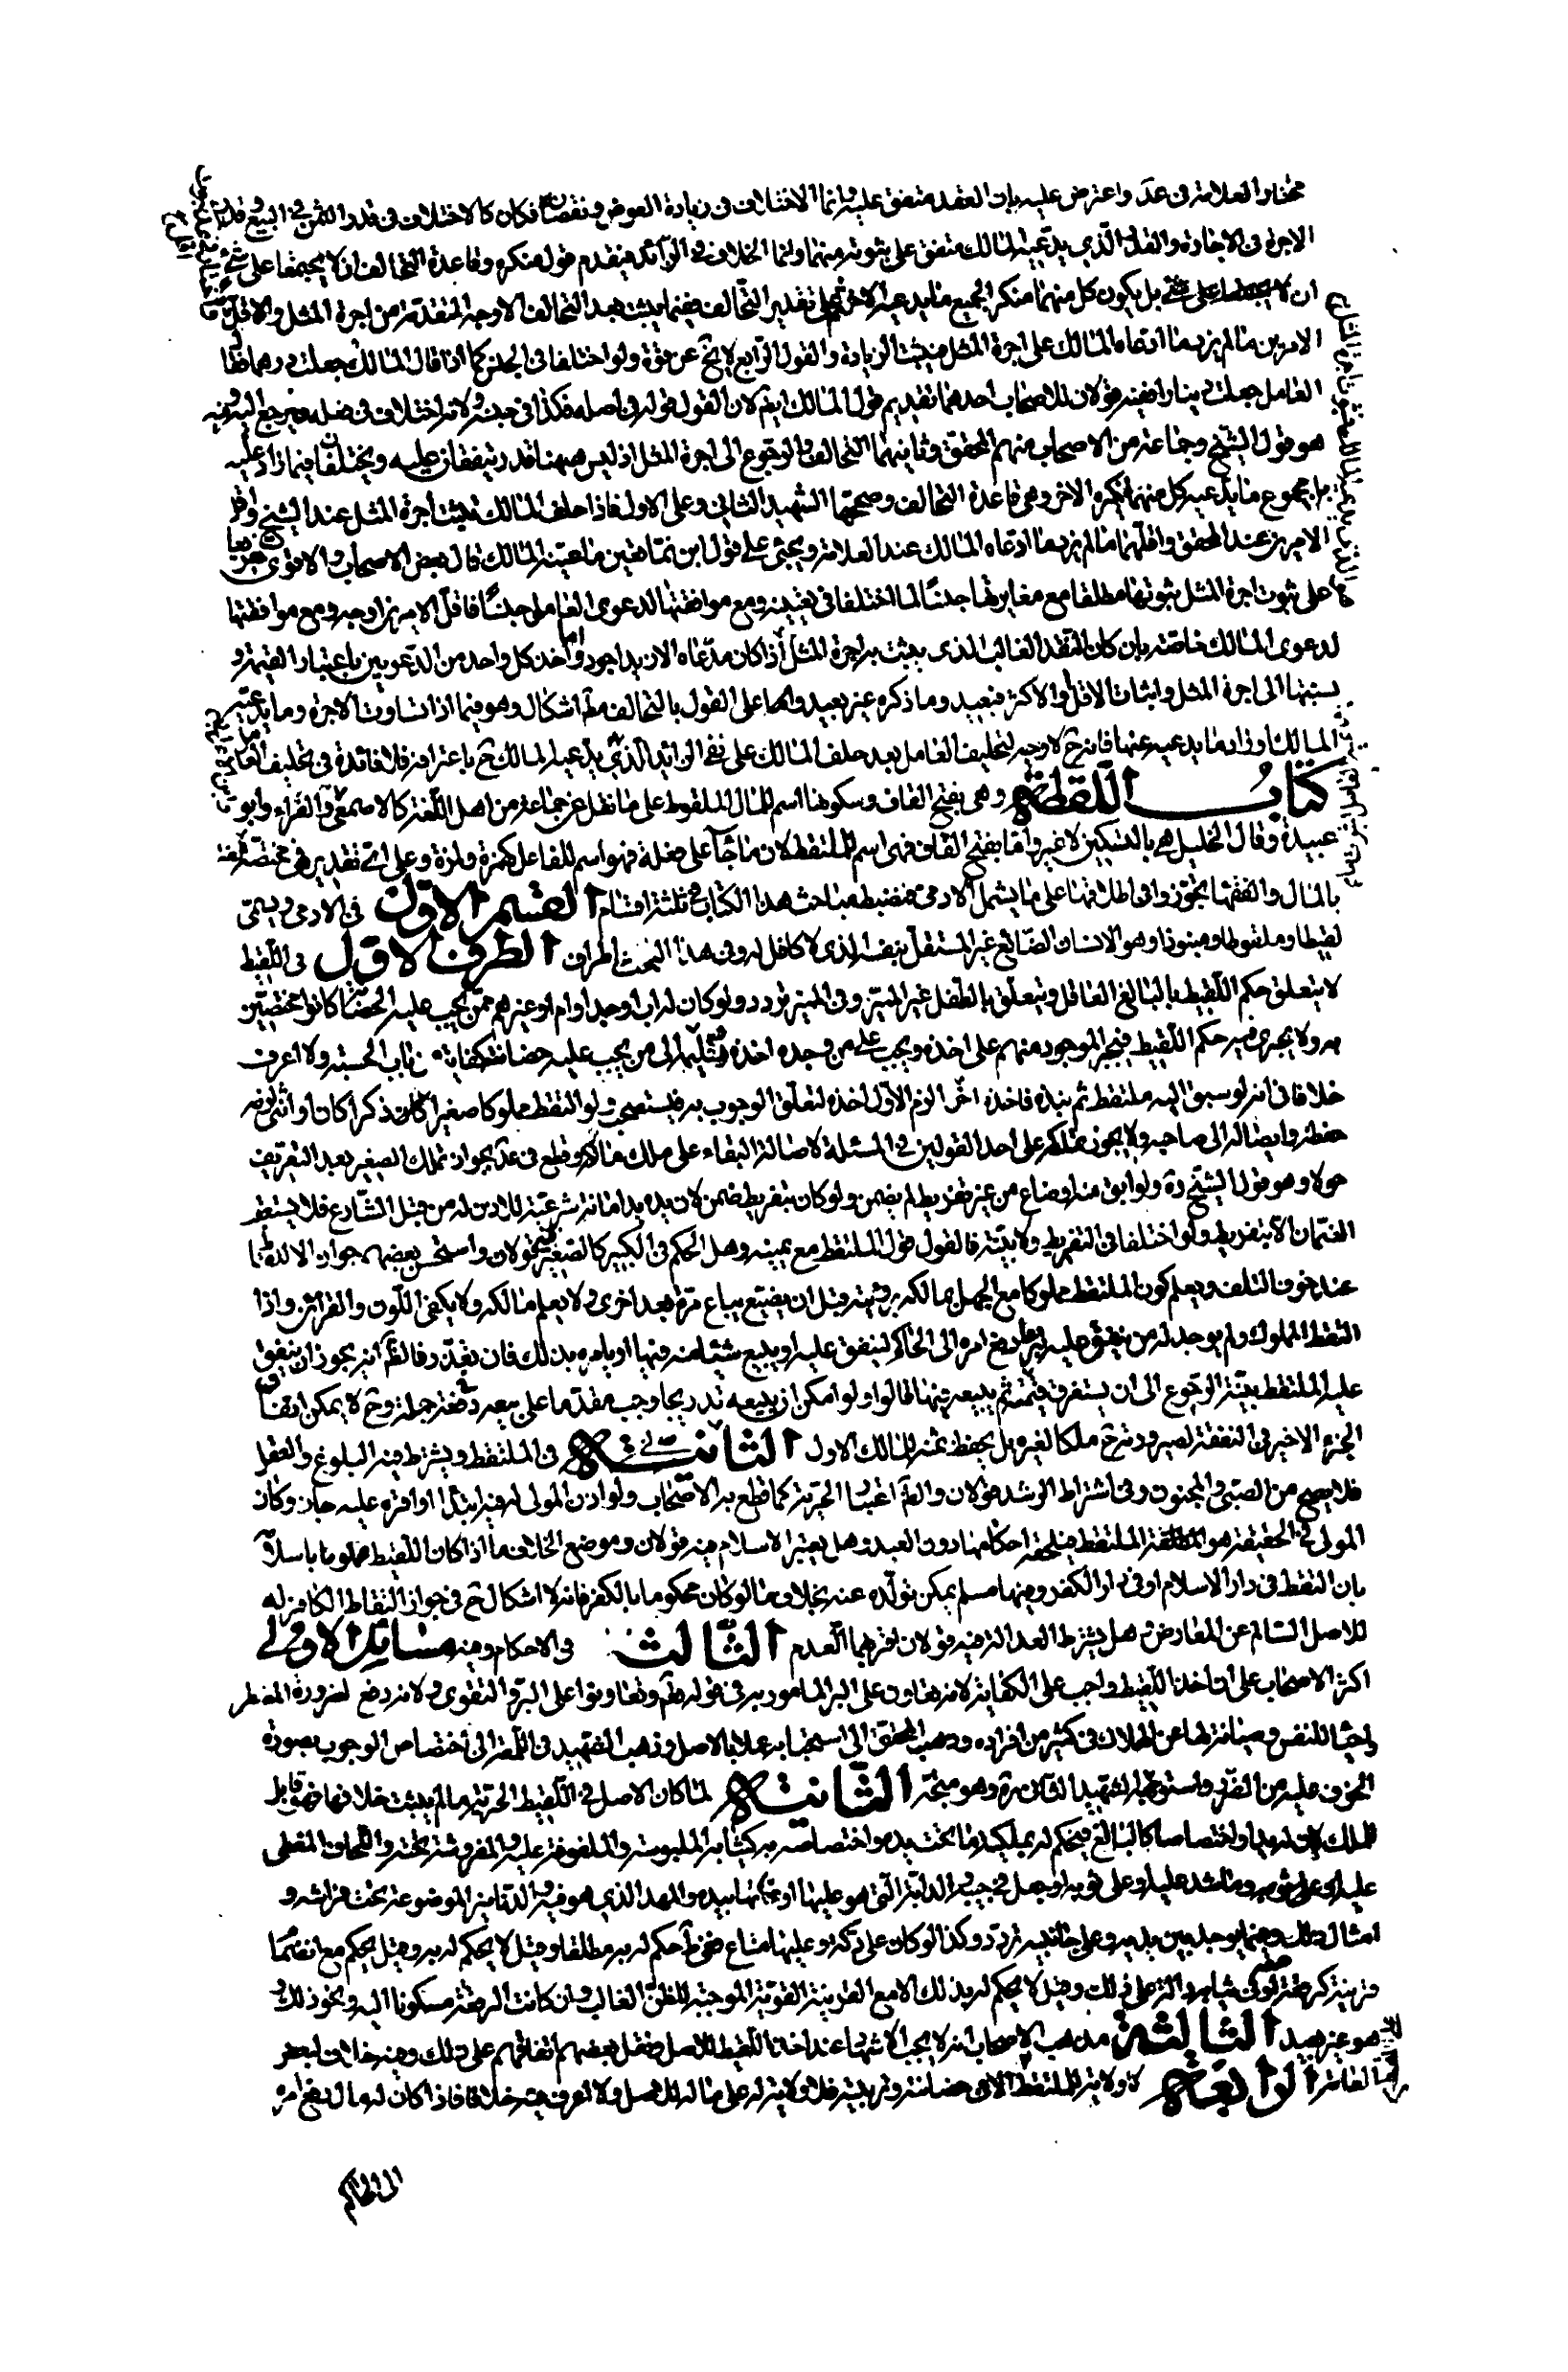 مختار العلامة في عد واعترض عليه بان العقد متفق عليه وانما الاختلاف في زيادة العوض ونقصانه فكان كالاختلاف في قدر الثمن في البيع وقدر
الاجرة في الاجارة والقدر الذي يدعيه المالك متفق على ثبوته منهما وانما الخلاف في الزائد فيقدم قول منكره وقاعدة التحالف ان لا يجتمعا على شيء
بل يكون كل منهما منكر الجميع ما يدعيه الاخر ثم على تقدير التحالف فيما يثبت بعد التحالف الاوجه المتقدمة من اجرة المثل والاقل
الامرين ما لم يزد ما ادعاه المالك على اجرة المثل فيثبت الزيادة والقول الرابع لا يخ عن قوة ولو اختلفا في الجنس كما اذا قال المالك جعلت درهما وقال
العامل جعلت دينارا ففيه قولان للاصحاب احدهما تقديم قول المالك ايضا لان القول قوله في اصله فكذا في جنسه ولانه اختلاف في فعله فيرجع اليه فيه
هو قول الشيخ وجماعة من الاصحاب منهم المحقق وثانيهما التحالف والرجوع الى اجرة المثل اذ ليس هيهنا قدر يتفقان عليه ويختلفان فيما زاد عليه
بل مجموع ما يدعيه كل منهما ينكره الاخر وهي قاعدة التحالف وصححها الشهيد الثاني وعلى الاول فاذا حلف المالك يثبت اجرة المثل عند الشيخ واقل
الامرين عند المحقق واقلهما ما لم يزد ما ادعاه المالك عند العلامة ويجئ على قول ابن نما تعيين ما عينه المالك قال بعض الاصحاب والاقوى
على ثبوت اجرة المثل ثبوتها مطلقا مع مغايرتها جنسا لما اختلفا في تعيينه ومع موافقتها لدعوى العامل جنسا فاقل الامرين اوجه ومع موافقتها
لدعوى المالك خاصة بان كان النقد الغالب الذي يثبت به اجرة المثل اذا كان مدعاه الازيد اجود واخذ كل واحد من الدعويين باعتبار القيمة و
نسبتها الى اجرة المثل واثبات الاقل والاكثر فبعيد وما ذكره غير بعيد واما على القول بالتحالف مط اشكال وهو فيما اذا تساوت الاجرة وما يدعيه
المالك او زاد ما يدعيه عنها فانه ح لا وجه لتحليف العامل بعد حلف المالك على نفي الزائد الذي يدعيه المالك ح باعترافه فلا فائدة في تحليف العامل
كتاب اللقطة وهي بفتح القاف وسكونها اسم للمال الملقوط على ما نقل عن جماعة من اهل اللغة كالاصمعي والفراء وابو
عبيدة وقال الخليل هي بالتسكين لا غير واما بفتح القاف فهي اسم للملتقط لان ما جاء على فعلة فهو اسم للفاعل كهمزة ولمزة وعلى اي تقدير هي مختصة لغة
بالمال والفقهاء تجوزوا في اطلاقها على ما يشمل الادمي فضبطه مباحث هذا الكتاب في ثلثة اقسام القسم الاول في الادمي ويسمى
لقيطا وملقوطا ومنبوذا وهو الانسان الضائع غير المستقل بنفسه الذي لا كافل له وفي هذا البحث اطراف الطرف الاول في اللقيط
لا يتعلق حكم اللقيط بالبالغ العاقل ويتعلق بالطفل غير المميز وفي المميز تردد ولو كان له اب او جد او ام او غيرهم ممن يجب عليه الحضانة كانوا مختصين
به ولا يجري فيه حكم اللقيط فيجبر الموجود منهم على اخذه ويجب على من وجده اخذه وتسليمه الى من يجب عليه حضانته كفاية من باب الحسبة ولا اعرف
خلافا في انه لو سبق اليه ملتقط ثم نبذه فاخذه اخر الزم الاول اخذه لتعلق الوجوب به فيستصحب ولو التقط مملوكا صغيرا كان ذكرا كان او انثى لزمه
حفظه وايصاله الى صاحبه ولا يجوز تملكه على احد القولين في المسئلة لاصالة البقاء على ملك مالكه وقطع في عد بجواز تملك الصغير بعد التعريف
حولا وهو قول الشيخ ره ولو ابق منه او ضاع من غير تفريط لم يضمن ولو كان بتفريط ضمن لان يده يد امانة شرعية للاذن له من قبل الشارع فلا يستعقب
الضمان الا بتفريط ولو اختلفا في التفريط ولا بينة فالقول قول الملتقط مع يمينه وهل الحكم في الكبير كالصغير قولان واستحسن بعضهم جواز الالتقاط
عند خوف التلف ويعلم كون الملتقط مملوكا مع الجهل بمالكه برؤيته قبل ان يضيع يباع مرة بعد اخرى ولا يعلم مالكه ولا يكفي اللون والقرائن واذا
التقط المملوك ولم يوجد له من ينفق عليه رفع امره الى الحاكم لينفق عليه او يبيع شيئا منه فيها او يامره بذلك فان تعذر فالظ انه يجوز ان ينفق
عليه الملتقط بنية الرجوع الى ان يستغرق قيمته ثم يبيعه فيها قالوا ولو امكن ان يبيعه تدريجا وجب مقدما على بيعه دفعة جملة وح لا يمكن انفاق
الجزء الاخير في النفقة لصيرورته ح ملكا لغيره بل يحفظ ثمنه للمالك الاول الثاني في الملتقط ويشترط فيه البلوغ والعقل
فلا يصح من الصبي والمجنون وفي اشتراط الرشد قولان والظ اعتبار الحرية كما قطع به الاصحاب ولو اذن المولى له فيه ابتداء او اقره عليه جاز وكان
المولى في الحقيقة هو الملتقط فيلحقه احكامها دون العبد وهل يعتبر الاسلام فيه قولان وموضع الخلاف ما اذا كان اللقيط محكوما باسلامه
بان التقط في دار الاسلام او في دار الكفر وفيها مسلم يمكن تولده عنه بخلاف ما لو كان محكوما بالكفر فانه لا اشكال ح في جواز التقاط الكافر له
للاصل السالم عن المعارض وهل يشترط العدالة فيه قولان اقربهما العدم الثالث في الاحكام وفيه مسائل الاولى
اكثر الاصحاب على ان اخذ اللقيط واجب على الكفاية لانه تعاون على البر المامور به في قوله تعم وتعاونوا على البر والتقوى ولانه دفع لضرورة المضطر
واحياء للنفس وصيانة لها عن الهلاك في كثير من افراده وذهب المحقق الى استحبابه عملا بالاصل وذهب الشهيد في اللمعة الى اختصاص الوجوب بصورة
الخوف عليه من الضرر واستوجهه الشهيد الثاني ره وهو متجه الثانية لما كان الاصل في اللقيط الحرية ما لم يثبت خلافها فهو قابل
للملك له يدا واختصاصا كالبالغ فيحكم له بملكية ما تحت يده واختصاصه به كثيابه الملبوسة والملفوفة عليه والمفروشة تحته واللحاف المغطى
عليه او على ثوبه وما شد عليه او على ثوبه او جعل في جيبه والدابة التي هو عليها او عنانها بيده والمهد الذي هو فيه والدنانير الموضوعة تحت فراشه و
امثال ذلك وفيما يوجد بين يديه وعلى جانبيه تردد وكذا لو كان على دكة وعليها متاع ففي ط حكم له به مطلقا وقيل لا يحكم له به وقيل يحكم مع انضمام
قرينة كرقعة في ثيابه دالة على ذلك وقيل لا يحكم له بذلك الا مع القرينة القوية الموجبة للظن الغالب وان كانت الرقعة مسكونا اليه ونحو ذلك و
هو غير بعيد الثالثة مذهب الاصحاب انه لا يجب الاشهاد عند اخذ اللقيط للاصل ونقل بعضهم اتفاقهم على ذلك وفيه خلاف لبعض
العامة الرابعة لا ولاية للملتقط الا في حضانته وتربيته فلا ولاية له على ماله للاصل ولا اعرف فيه خلافا فاذا كان له مال رفع امره
الى الحاكم